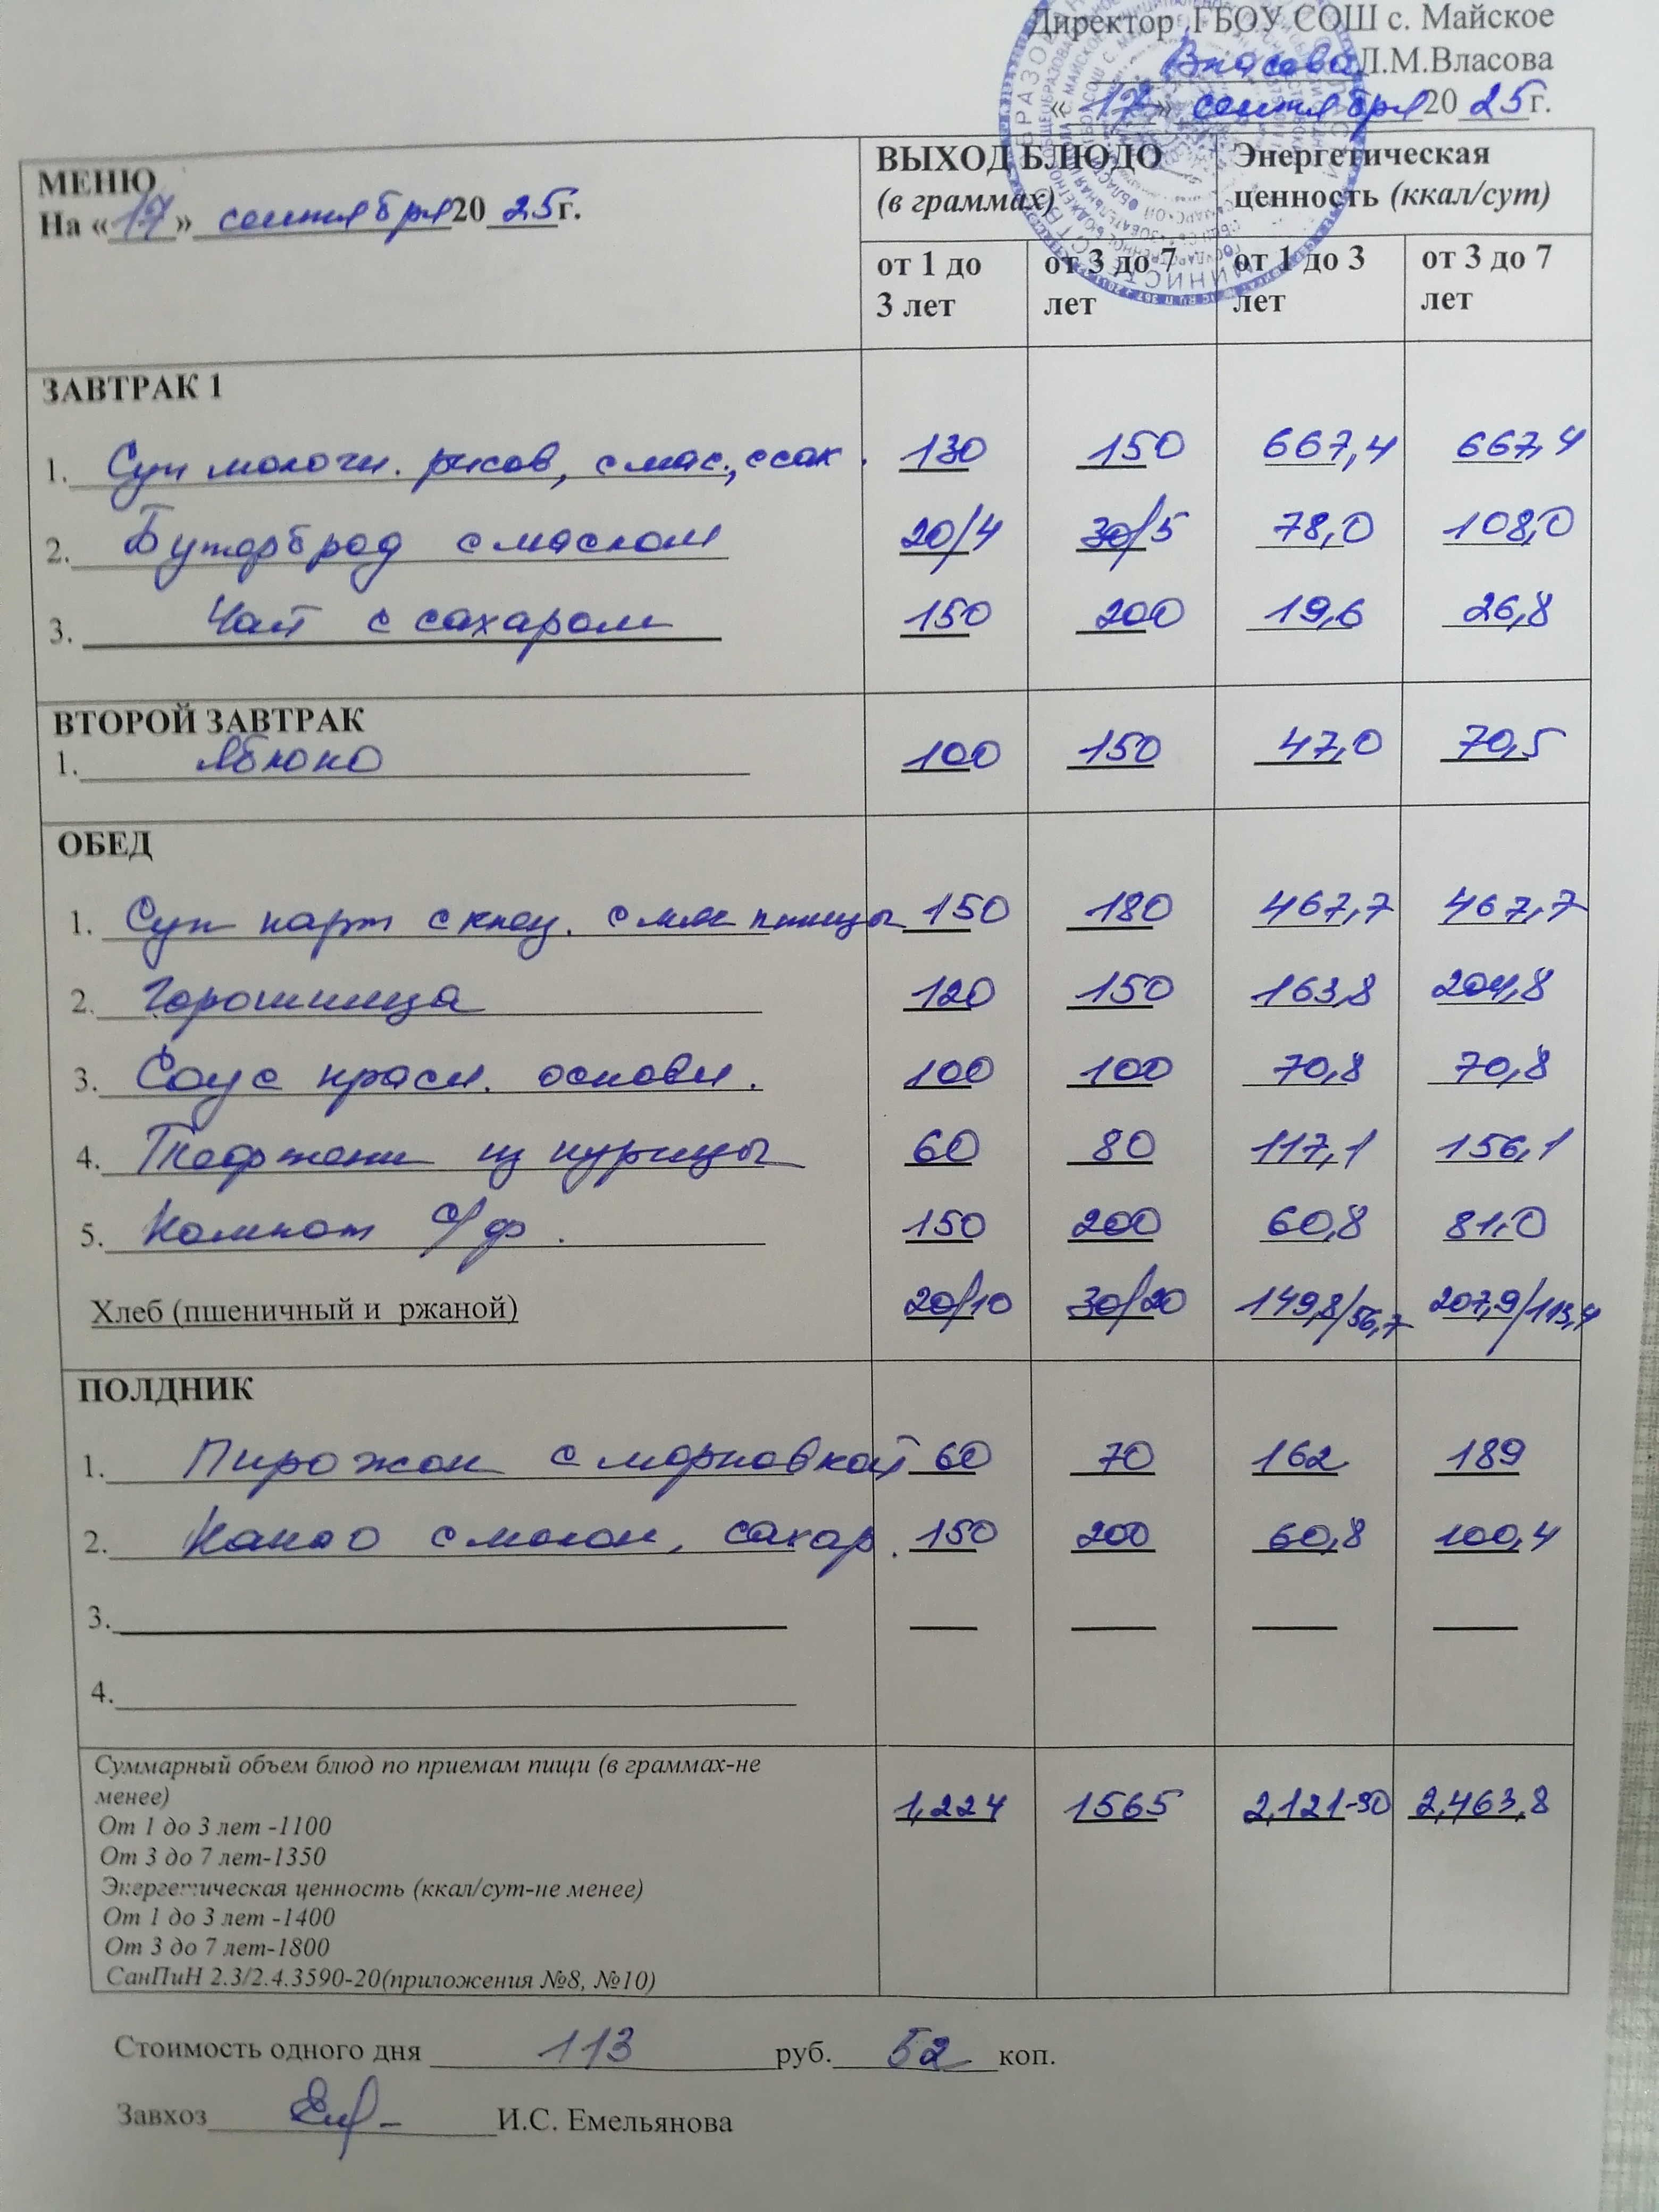 Директор ГБОУ СОШ с. Майское
Власова Л.М.Власова
«17» сентября 20 25 г.
МЕНЮ
На «17» сентября 20 25 г.
ВЫХОД БЛЮДО
(в граммах)
Энергетическая
ценность (ккал/сут)
от 1 до 3 лет от 3 до 7 лет от 1 до 3 лет от 3 до 7 лет
ЗАВТРАК 1
1. Суп молочн. рисов, с мас., с сах. 130 150 667,4 667,4
2. Бутерброд с маслом 20/4 30/5 78,0 108,0
3. Чай с сахаром 150 200 19,6 26,8
ВТОРОЙ ЗАВТРАК
1. Яблоко 100 150 47,0 70,5
ОБЕД
1. Суп карт с клец. с мяс птицы 150 180 467,7 467,7
2. Горошница 120 150 163,8 204,8
3. Соус красн. основн. 100 100 70,8 70,8
4. из курицы 60 80 117,1 156,1
5. Компот с/ф. 150 200 60,8 81,0
Хлеб (пшеничный и ржаной) 20/10 30/20 149,8/56,7 207,9/113,4
ПОЛДНИК
1. Пирожок с морковкой 60 70 162 189
2. Какао с молок, сахар. 150 200 60,8 100,4
3.
4.
Суммарный объем блюд по приемам пищи (в граммах-не
менее)
1,224 1565 2,121-90 2,463,8
От 1 до 3 лет -1100
От 3 до 7 лет-1350
Энергетическая ценность (ккал/сут-не менее)
От 1 до 3 лет -1400
От 3 до 7 лет-1800
СанПиН 2.3/2.4.3590-20(приложения №8, №10)
Стоимость одного дня 113 руб. 52 коп.
Завхоз И.С. Емельянова